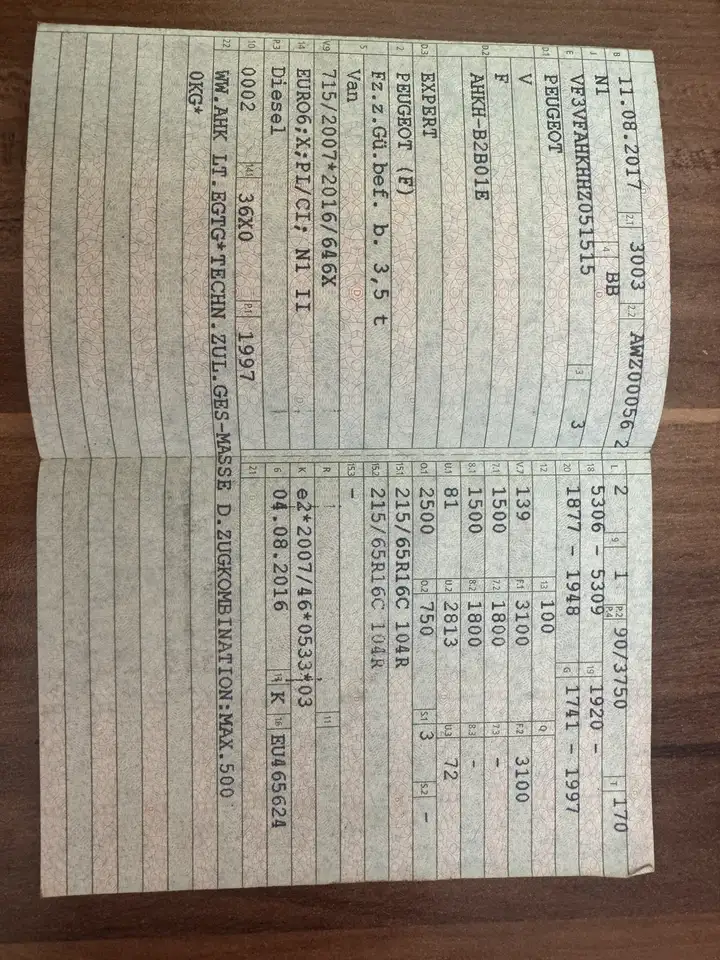 B 11.08.2017 2.1 3003 2.2 AWZ00056 2
J N1 4 BB
E VF3VFAHKHHZ051515 3 3
D.1 PEUGEOT
V
F
D.2 AHKH-B2B01E
D.3 EXPERT
2 PEUGEOT (F)
5 Fz.z.Gü.bef. b. 3,5 t
Van
V.9 715/2007*2016/646X
14 EURO6;X;PI/CI; N1 II
P.3 Diesel
10 0002 14.1 36X0 P.1 1997
22 WW.AHK LT.EGTG*TECHN.ZUL.GES-MASSE D.ZUGKOMBINATION:MAX.500
0KG*
L 2 9 1 P.2 P.4 90/3750 T 170
18 5306 - 5309 19 1920 -
20 1877 - 1948 G 1741 - 1997
12 13 100 Q
V.7 139 F.1 3100 F.2 3100
7.1 1500 7.2 1800 7.3 -
8.1 1500 8.2 1800 8.3 -
U.1 81 U.2 2813 U.3 72
O.1 2500 O.2 750 S.1 3 S.2 -
15.1 215/65R16C 104R
15.2 215/65R16C 104R
15.3 -
R 11
K e2*2007/46*0533*03
6 04.08.2016 17 K 16 EU465624
21